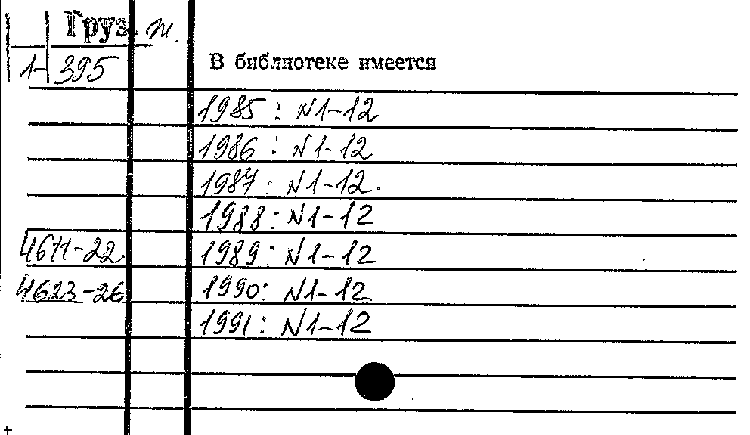 Груз. ж.
1-395
В библиотеке имеется
1985: N1-12
1986: N1-12
1987: N1-12.
1988: N1-12
4611-22. 1989: N1-12
4623-26 1990: N1-12
1991: N1-12